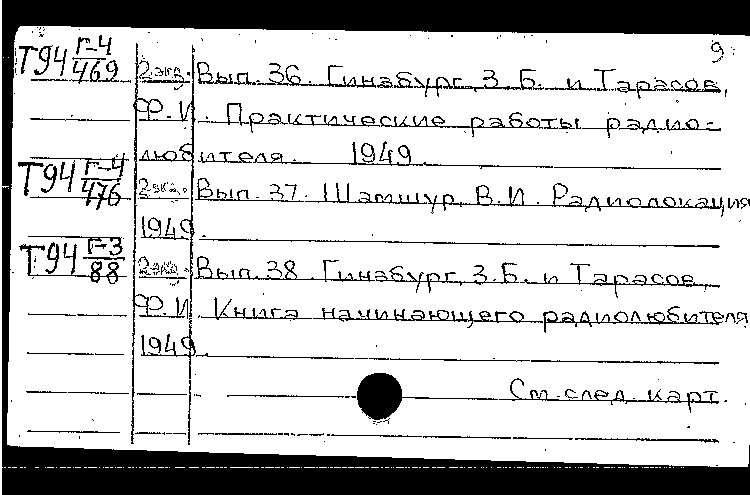 9.
Т94 Г-4/469 2 экз. Вып. 36. Гинзбург, З. Б. и Тарасов,
Ф. И. Практические работы радио-
любителя. 1949.
Т94 Г-4/476 2 экз. Вып. 37. Шамшур, В. И. Радиолокация
1949.
Т94 Г-3/88 2 экз. Вып. 38. Гинзбург, З. Б. и Тарасов,
Ф. И. Книга начинающего радиолюбителя
1949.
См. след. карт.